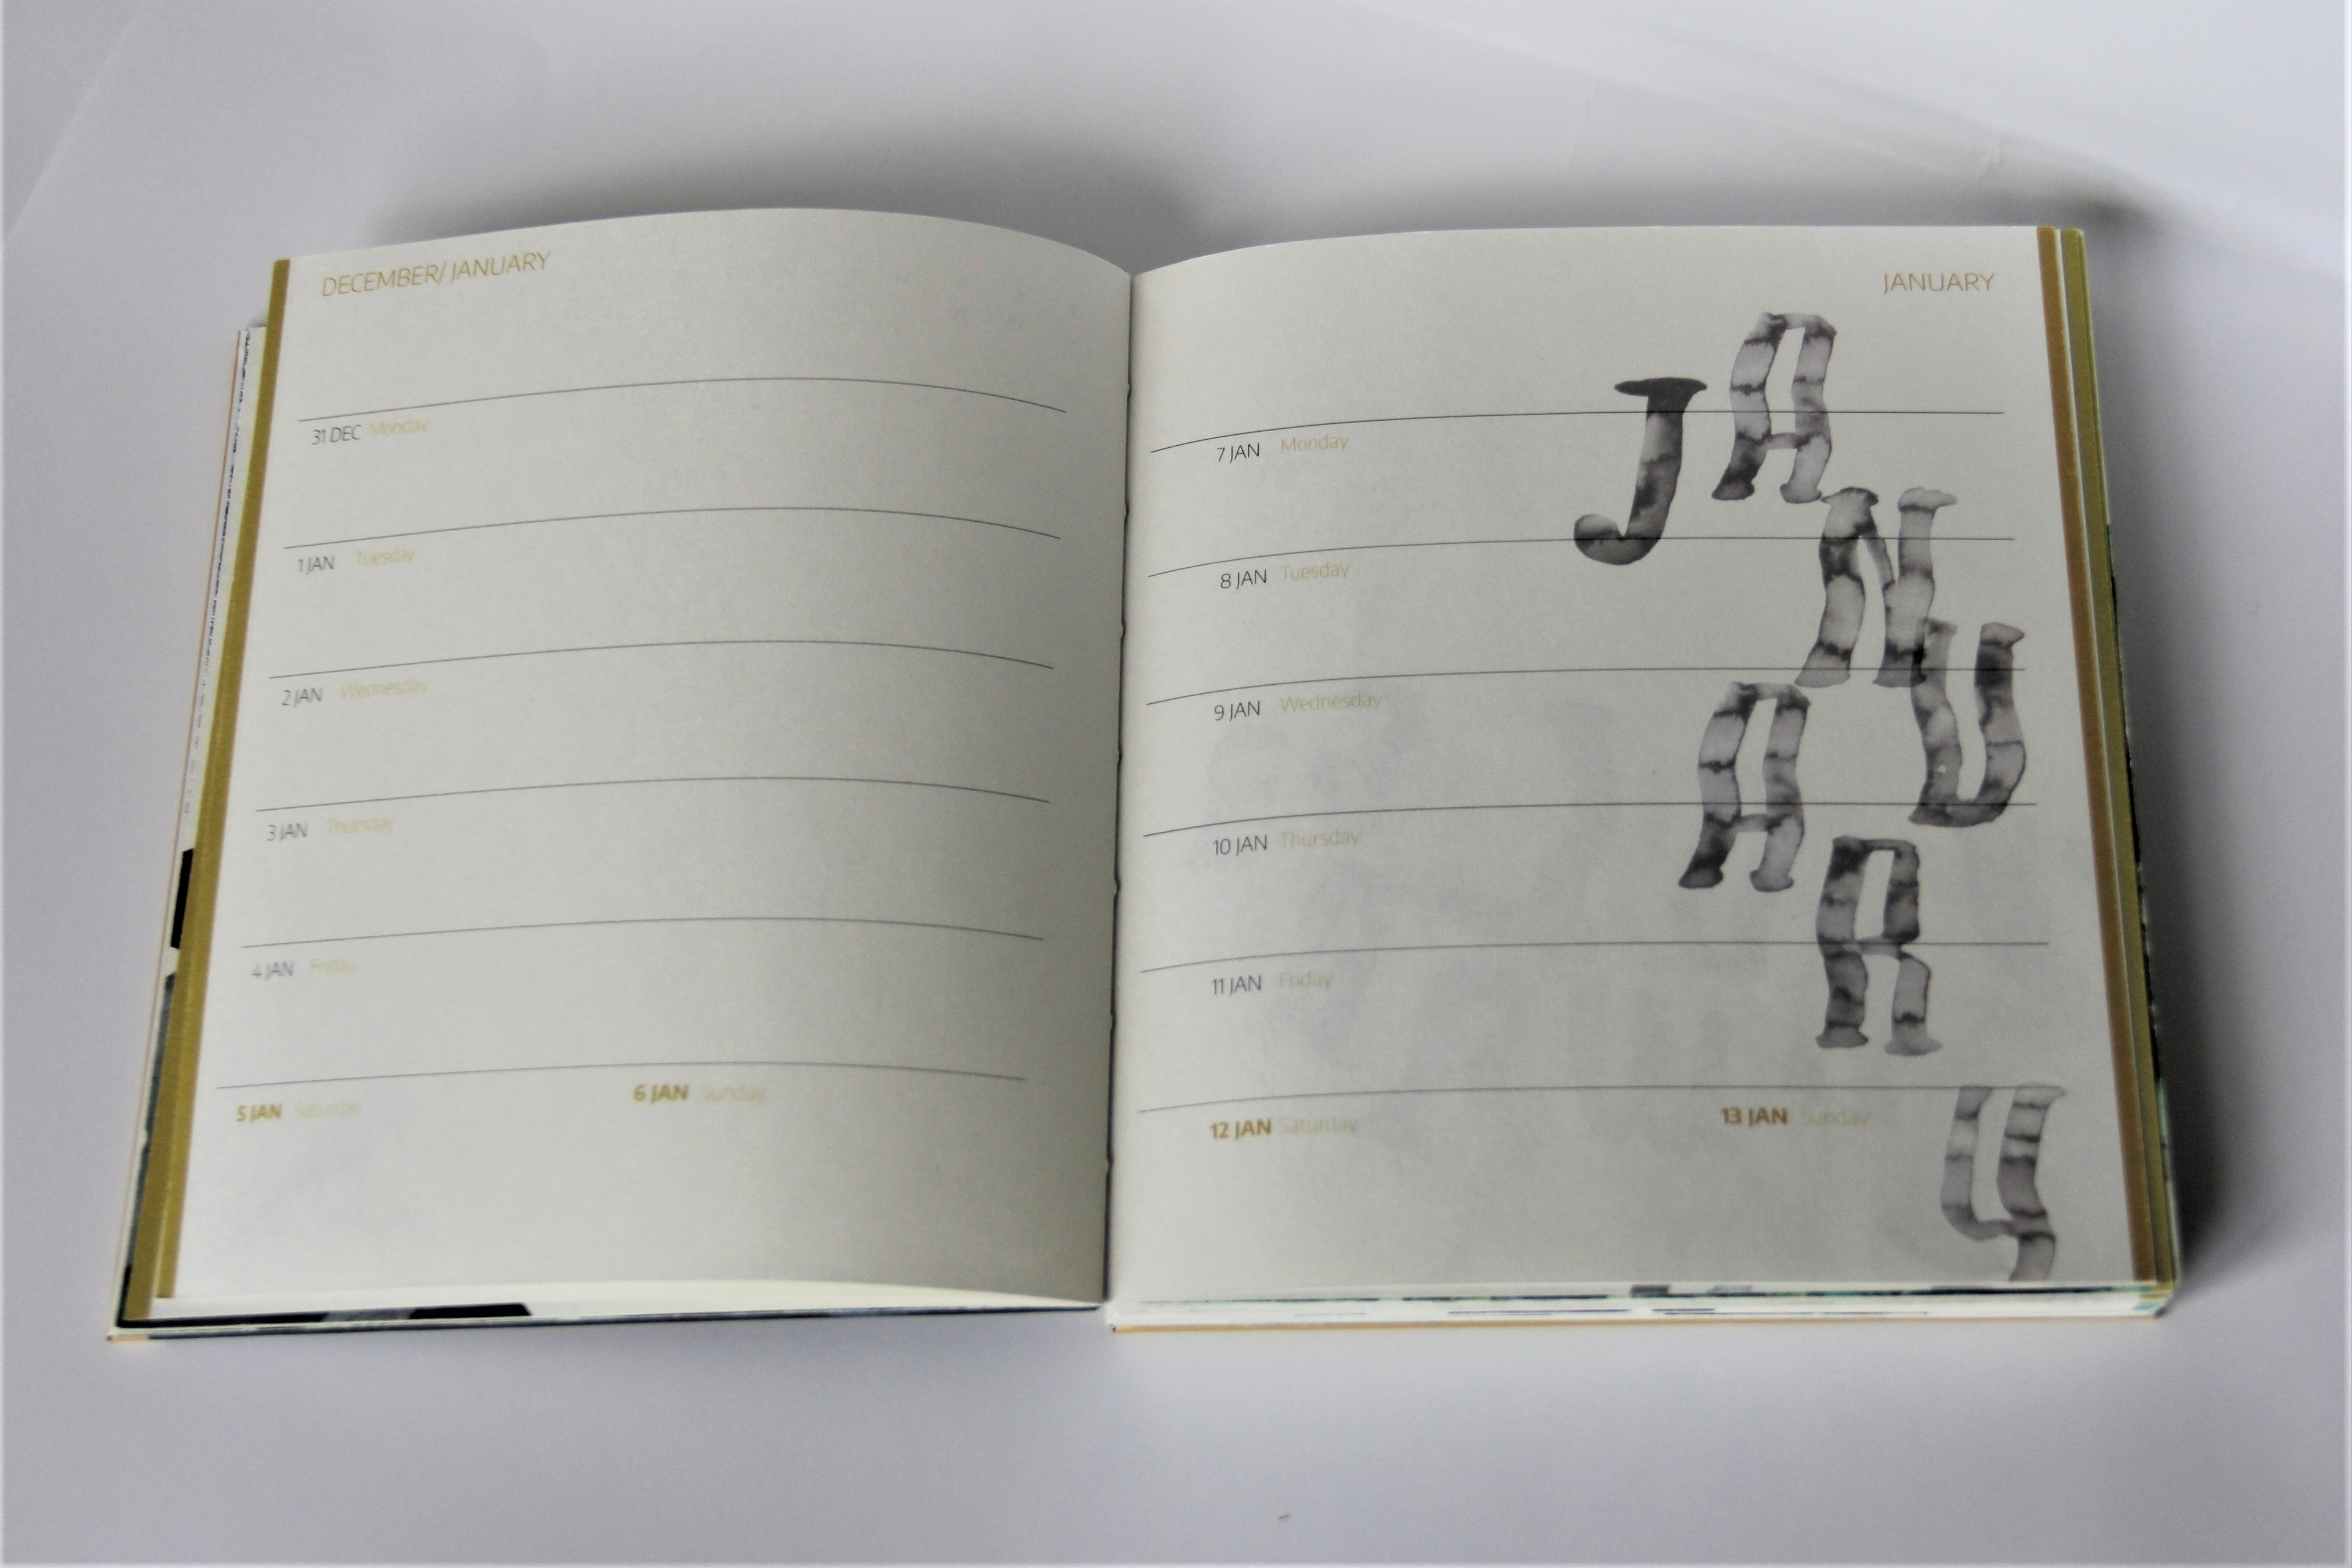 DECEMBER/ JANUARY
31 DEC Monday
1 JAN Tuesday
2 JAN Wednesday
3 JAN Thursday
4 JAN Friday
5 JAN Saturday 6 JAN Sunday
JANUARY
7 JAN Monday
8 JAN Tuesday
9 JAN Wednesday
10 JAN Thursday
11 JAN Friday
12 JAN Saturday 13 JAN Sunday
JANUARY